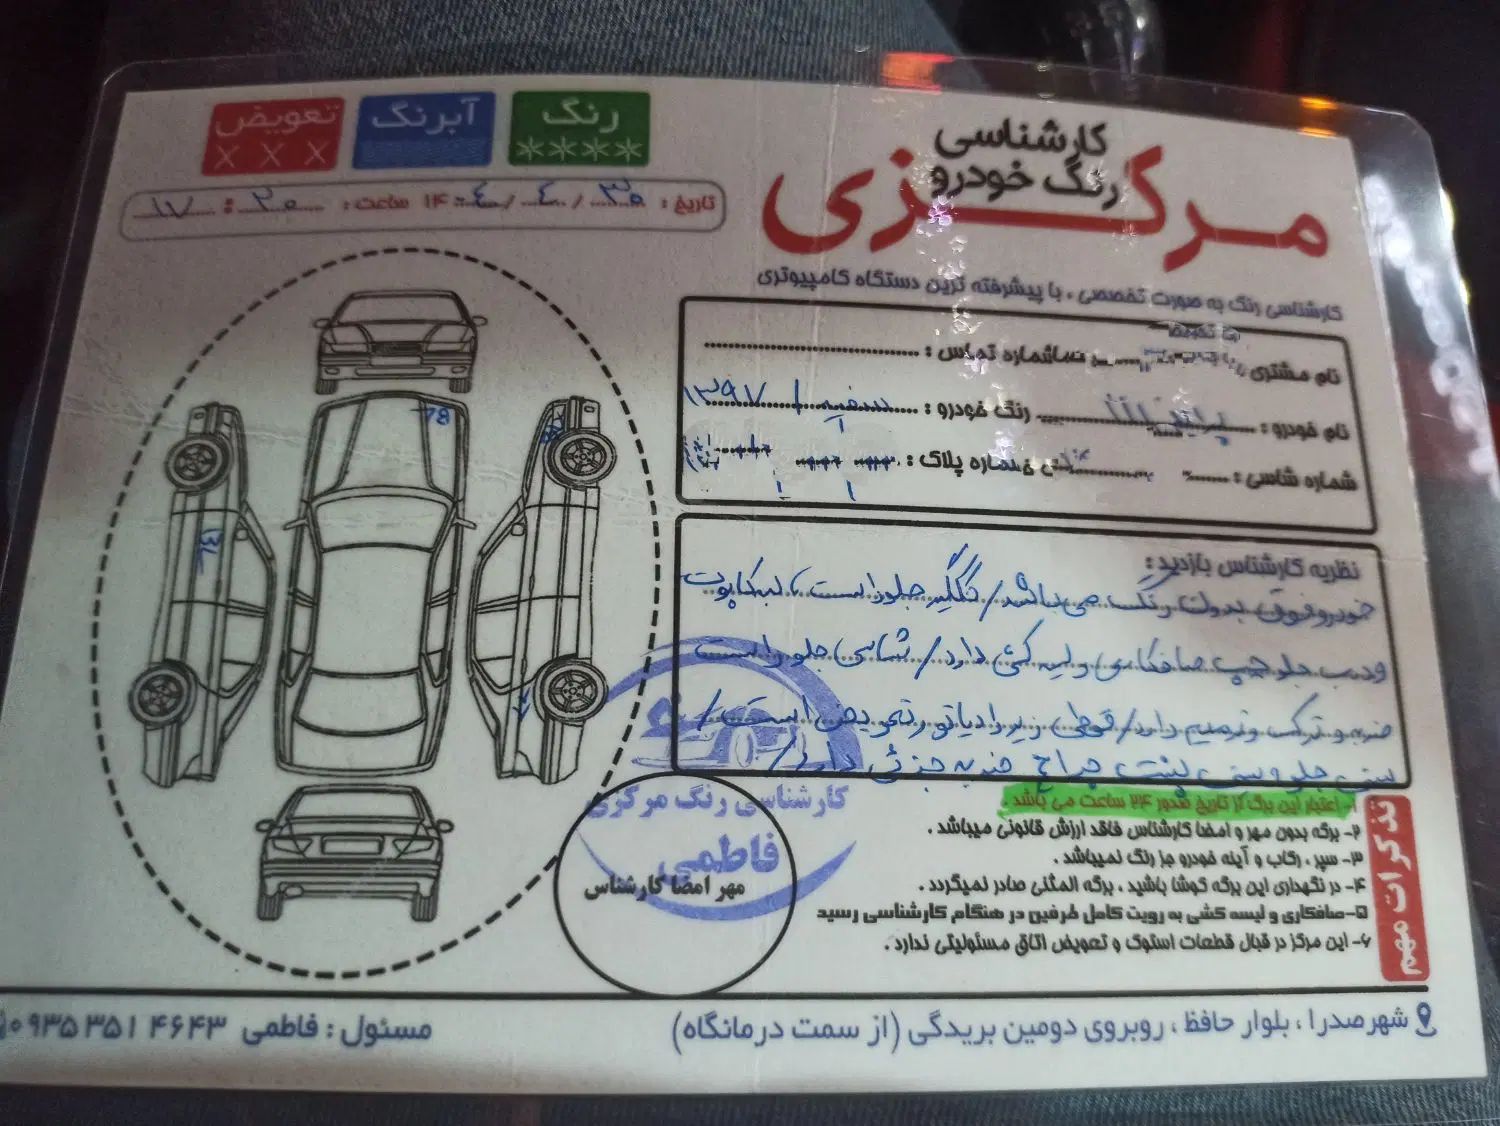 تعویض
× × ×
آبرنگ
رنگ
****
تاریخ: ۳۰ / ۴ / ۱۴۰۴ ساعت: ۲۰ : ۱۷
کارشناسی
رنگ خودرو
مرکزی
کارشناسی رنگ به صورت تخصصی ، با پیشرفته ترین دستگاه کامپیوتری
نام مشتری شماره تماس :
نام خودرو : رنگ خودرو : سفید ۱۳۹۷
شماره شاسی : شماره پلاک :
نظریه کارشناس بازدید :
خودرو فوق بدون رنگ می باشد / گلگیر جلو راست ، لبه کاپوت
و درب جلو چپ صافکاری و لیسه کشی دارد / شاسی جلو راست
ضربه و ترک و ترمیم دارد / قوطی زیر رادیاتور تعویض است /
سینی جلو و سینی پشت چراغ ضربه جزئی دارد /
کارشناسی رنگ مرکزی
فاطمی
مهر امضا کارشناس
تذکرات مهم
۱- اعتبار این برگ از تاریخ صدور ۲۴ ساعت می باشد .
۲- برگه بدون مهر و امضا کارشناس فاقد ارزش قانونی میباشد .
۳- سپر ، رکاب و آینه خودرو جز رنگ نمیباشد .
۴- در نگهداری این برگه کوشا باشید ، برگه المثنی صادر نمیگردد .
۵-صافکاری و لیسه کشی به رویت کامل طرفین در هنگام کارشناسی رسید
۶- این مرکز در قبال قطعات استوک و تعویض اتاق مسئولیتی ندارد .
شهرصدرا ، بلوار حافظ ، روبروی دومین بریدگی (از سمت درمانگاه)
مسئول : فاطمی ۰۹۳۵ ۳۵۱ ۴۶۴۳